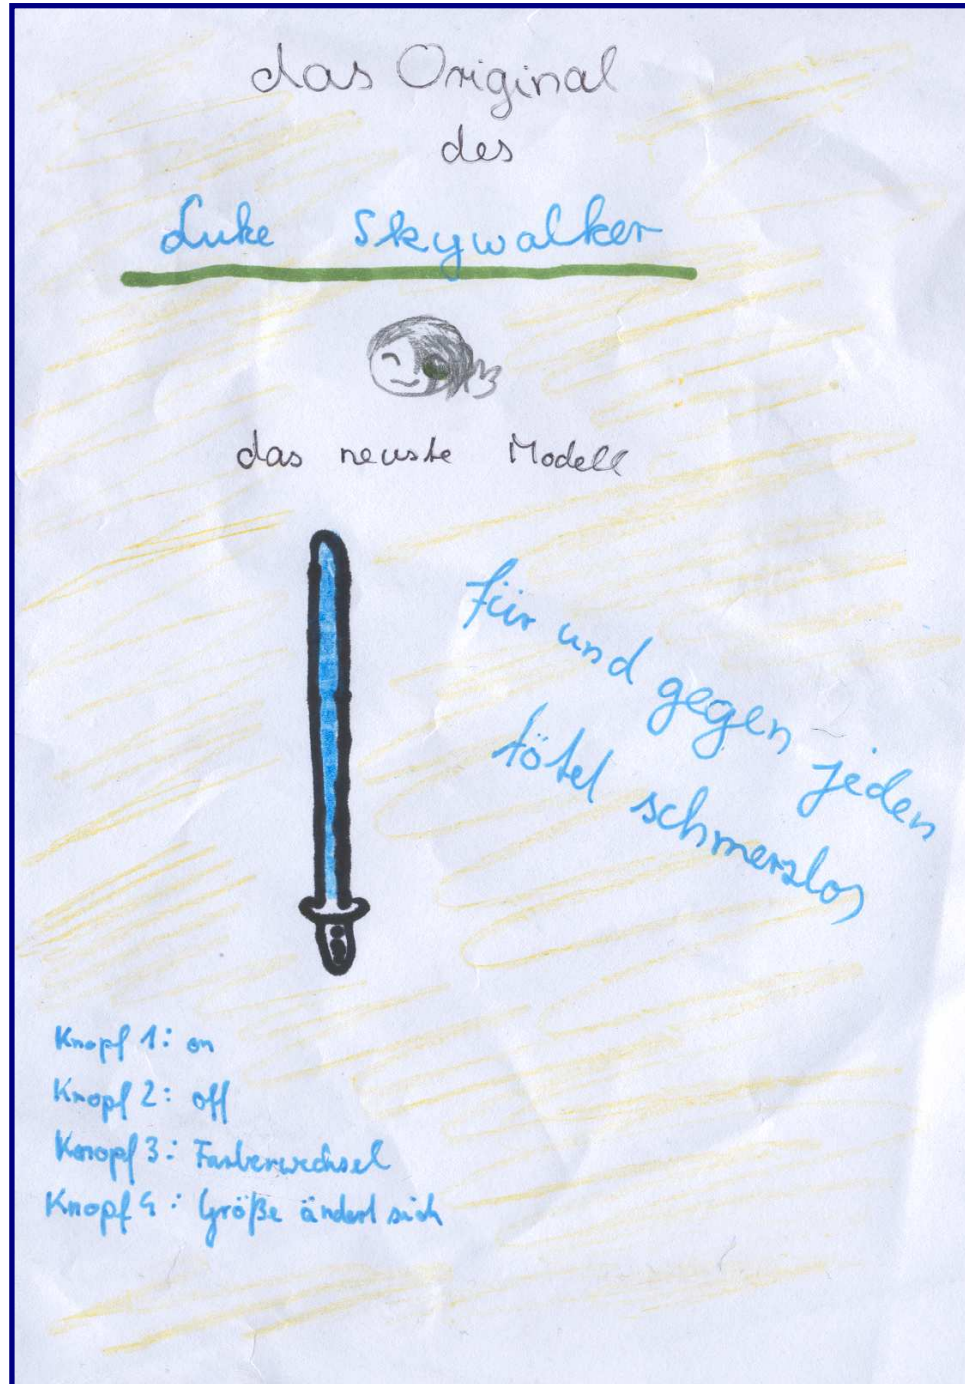 das Original
des
Luke Skywalker
das neuste Modell
für und gegen jeden
tötet schmerzlos
Knopf 1: on
Knopf 2: off
Knopf 3: Farbenwechsel
Knopf 4: Größe ändert sich